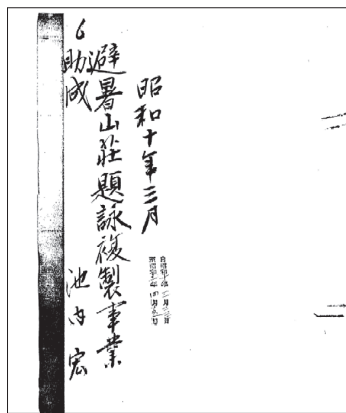 昭和十年三月
避暑山荘題詠複製事業
6 助成
池内宏